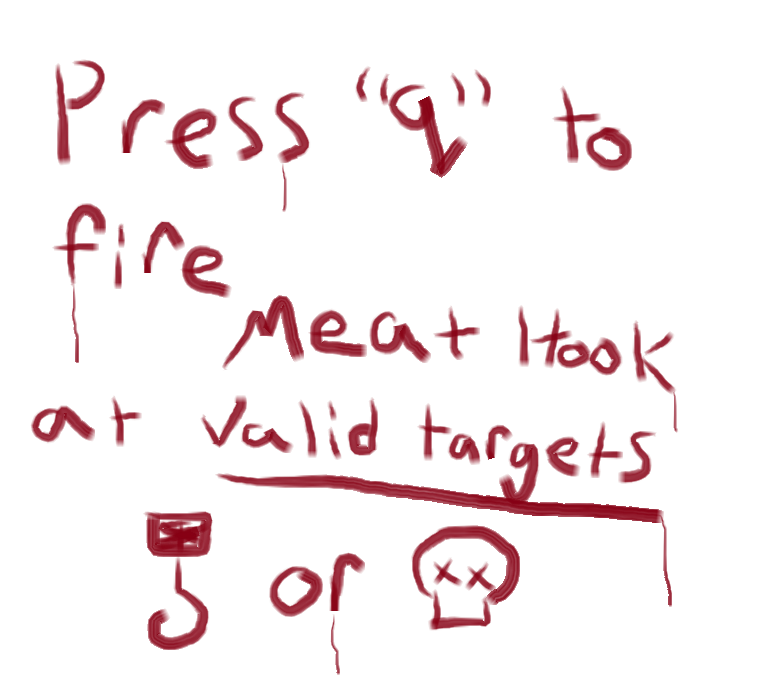 Press "q" to
fire
Meat Hook
at valid targets
or